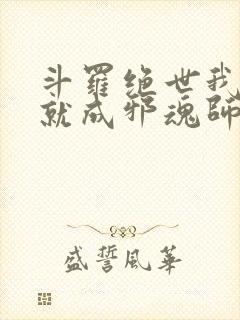 斗羅绝世我
就成邪魂師
盛誓風華